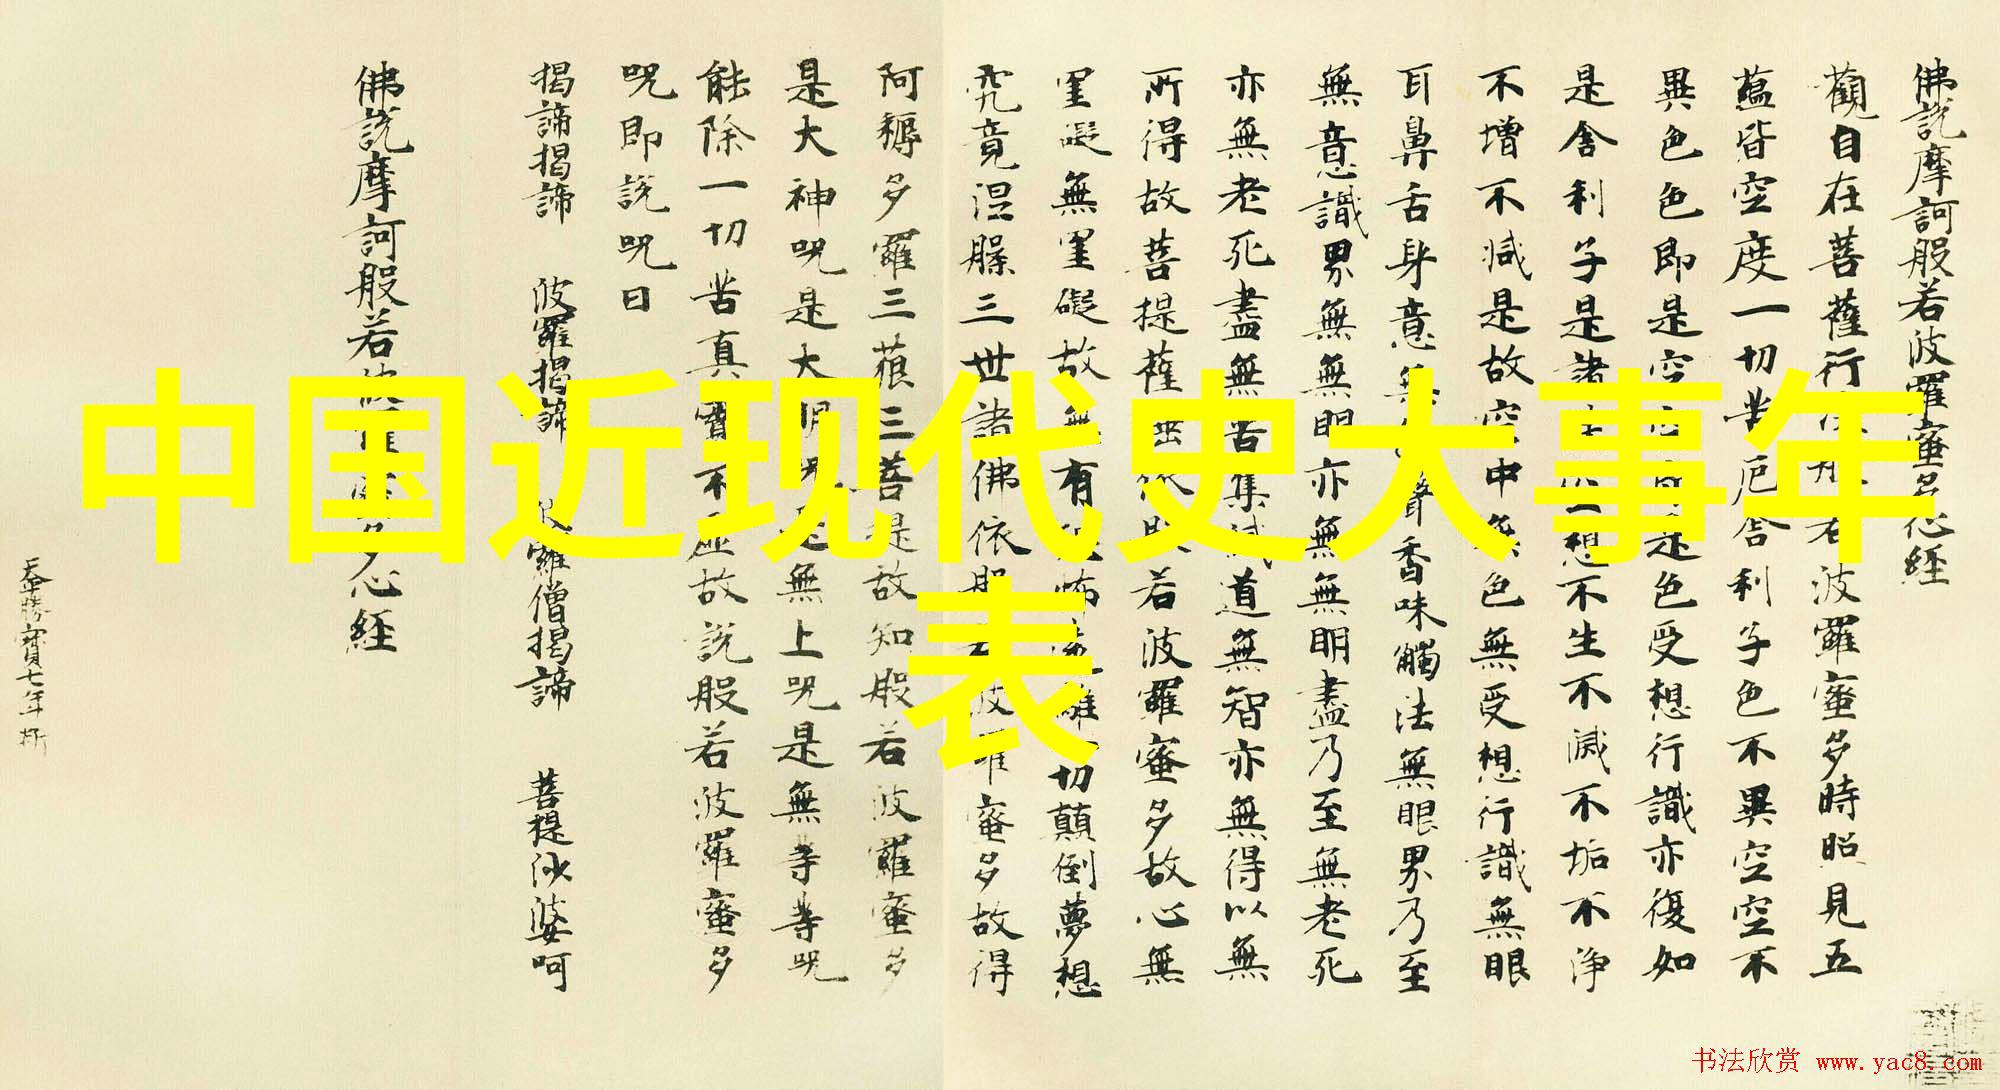 佛説摩訶般若波羅蜜多心經
觀自在菩薩行深般若波羅蜜多時照見五
蘊皆空度一切苦厄舍利子色不異空空不
異色色即是空空即是色受想行識亦復如
是舍利子是諸法空想不生不滅不垢不淨
不增不減是故空中無色無受想行識無眼
耳鼻舌身意無色聲香味觸法無眼界乃至
無意識界無無明亦無無明盡乃至無老死
亦無老死盡無苦集滅道無智亦無得以無
所得故菩提薩埵依般若波羅蜜多故心無
罣礙無罣礙故無有恐怖遠離一切顛倒夢想
究竟涅槃三世諸佛依般若波羅蜜多故得
阿耨多羅三藐三菩提故知般若波羅蜜多
是大神咒是大明咒是無上咒是無等等咒
能除一切苦真實不虛故說般若波羅蜜多
咒即説咒曰
揭諦揭諦 波羅揭諦 波羅僧揭諦 菩提沙婆呵
佛説摩訶般若波羅蜜多心經
天奉勝寶七年
中国近现代史大事年
表
书法欣赏 www.yac8.com